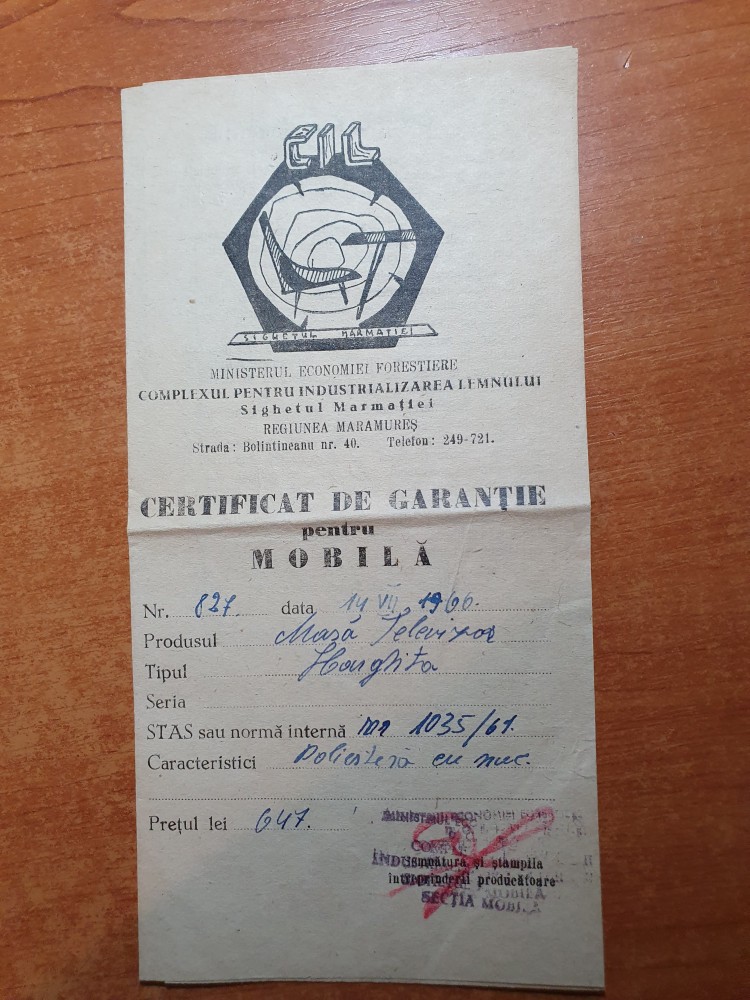 CIL
SIGHETUL MARMAȚIEI
MINISTERUL ECONOMIEI FORESTIERE
COMPLEXUL PENTRU INDUSTRIALIZAREA LEMNULUI
Sighetul Marmației
REGIUNEA MARAMUREȘ
Strada: Bolintineanu nr. 40. Telefon: 249-721.
CERTIFICAT DE GARANȚIE
pentru
MOBILĂ
Nr. 827. data 14 VII 1966.
Produsul Masă Televizor
Tipul Harghita
Seria
STAS sau normă internă 1035/61.
Caracteristici Poliesteră cu nuc.
Prețul lei 647.
MINISTERUL ECONOMIEI
semnătura și ștampila
întreprinderii producătoare
SECȚIA MOBILĂ